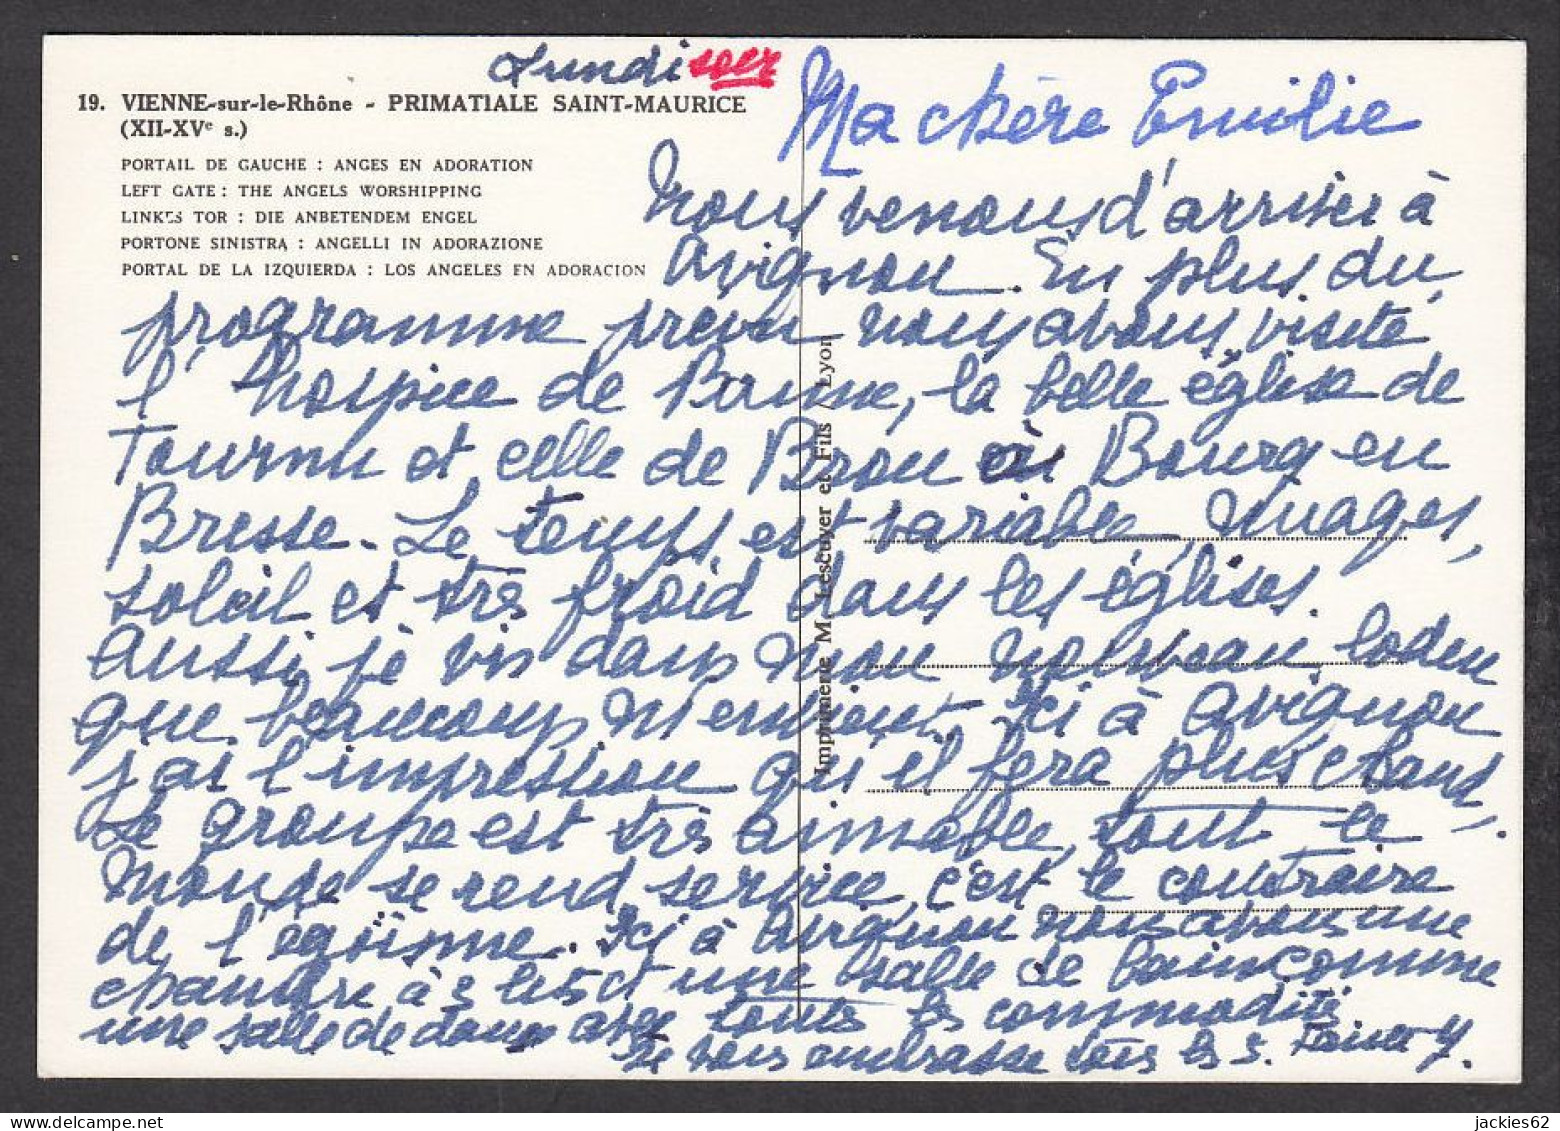 Lundi soir
19. VIENNE-sur-le-Rhône - PRIMATIALE SAINT-MAURICE
(XII-XVe s.)
PORTAIL DE GAUCHE : ANGES EN ADORATION
LEFT GATE : THE ANGELS WORSHIPPING
LINKES TOR : DIE ANBETENDEM ENGEL
PORTONE SINISTRA : ANGELLI IN ADORAZIONE
PORTAL DE LA IZQUIERDA : LOS ANGELES EN ADORACION
Ma chère Emilie
Nous venons d'arriver à
Avignon. En plus du
programme prevu nous avons visité
l'hospice de Baune, la belle église de
Tournu et celle de Brou en Bourg-en
Bresse. Le temps est variable, Nuages,
soleil et très froid dans les églises.
Aussi je vis dans mon nouveau loden
que beaucoup m'envient. Ici à Avignon
j'ai l'impression qu'il fera plus chaud.
Le groupe est très aimable, tout le
Monde se rend service, c'est le contraire
de l'égoïsme. Ici à Avignon nous avons une
chambre à 2 lits et une salle de bain comme
une salle de danse avec toutes les commodités
Je vous embrasse tous les 2.
Imprimerie M. Lescuyer et Fils / Lyon
jackies62